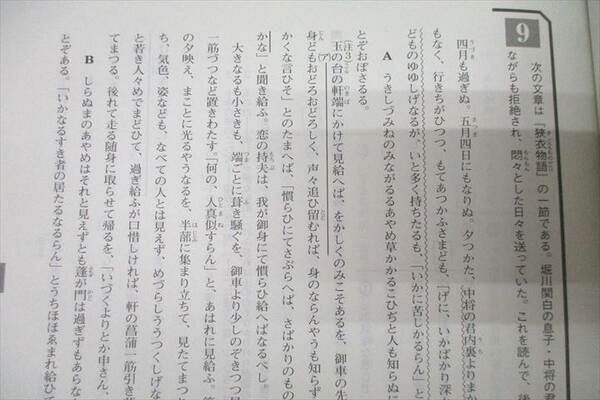 9
次の文章は『狭衣物語』の一節である。堀川関白の息子・中将の君
ながらも拒絶され、悶々とした日々を送っていた。これを読んで、後
四月も過ぎぬ。五月四日にもなりぬ。夕つかた、中将の君内裏よりまか
もなく、行きちがひつつ、もてあつかふさまども、「げに、いかばかり深
どものゆゆしげなるが、いと多く持ちたるも、「いかに苦しかるらん」と
A うきしづみねのみながるるあやめ草かかるこひぢと人も知らぬに
とぞおぼさるる。
玉の台の軒端にかけて見給へば、をかしくのみこそあるを、御車の先
身どもおどろおどろしく、声々追ひ留むれば、身のならんやうも知らず
かくな言ひそ」とのたまへば、「慣らひにてさぶらへば、さばかりのもの
かな」と聞き給ふ。恋の持夫は、我が御身にて慣らひ給へばなるべし。
大きなるも小さきも、端ごとに葺き騒ぐを、御車より少しのぞきつつ見
一筋づつなど置きわたす。「何の、人真似すらん」と、あはれに見給ふ。
の夕映え、まことに光るやうなるを、半蔀に集まり立ちて、見たてまつ
ち、気色、姿なども、なべての人とは見えず、めづらしううつくしげな
と若き人々めでまどひて、過ぎ給ふが口惜しければ、軒の菖蒲一筋引き
てまつる。後れて走る随身に取らせて帰るを、「いづくよりとか申さん、
B しらぬまのあやめはそれと見えずとも蓬が門は過ぎずもあらな
とぞある。「いかなるすき者の居たるなるらん」とうちほほゑまれ給ひて